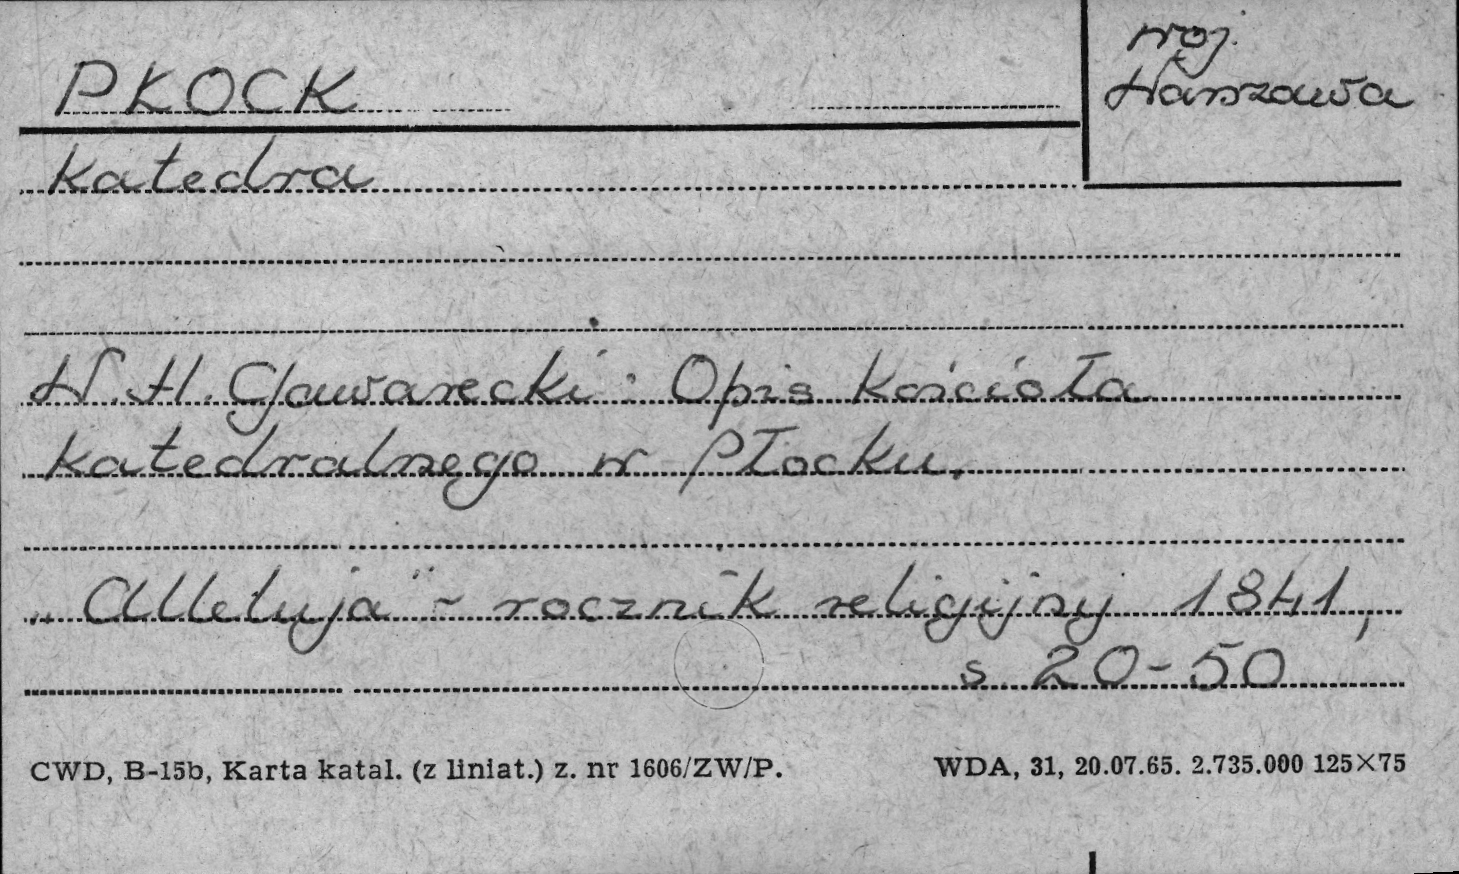 PŁOCK
woj.
Warszawa
Katedra
W. H. Gawarecki: Opis Kościoła
katedralnego w Płocku.
„Alleluja" - rocznik religijny 1841,
s 20-50
CWD, B-15b, Karta katal. (z liniat.) z. nr 1606/ZW/P.
WDA, 31, 20.07.65. 2.735.000 125×75